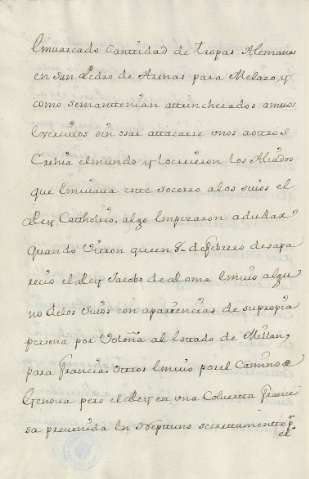 Embarcado Cantidad de tropas Alemanas
en San Pedro de Arenas para Melazo, y
como semanttenian attrincherados amvos
Exercitos sin osar attacarse unos aottros
Crehia elmundo y locreieron los Aliados
que Embiava este socorro alos suios el
Rey Catholico, algo Empezaron adudar
Quando Vieron queen 8 de Febrero desapa
recio el Rey Jacobo de Roma Embio algu
no delos suios con apariencias de supropia
persona por Voloña al Estado de Millan,
para Francia; otros Embio porel Camino de
Genova pero el Rey en una Coluerta France
sa prevenida En Nepttuno secrettamente p.r
el